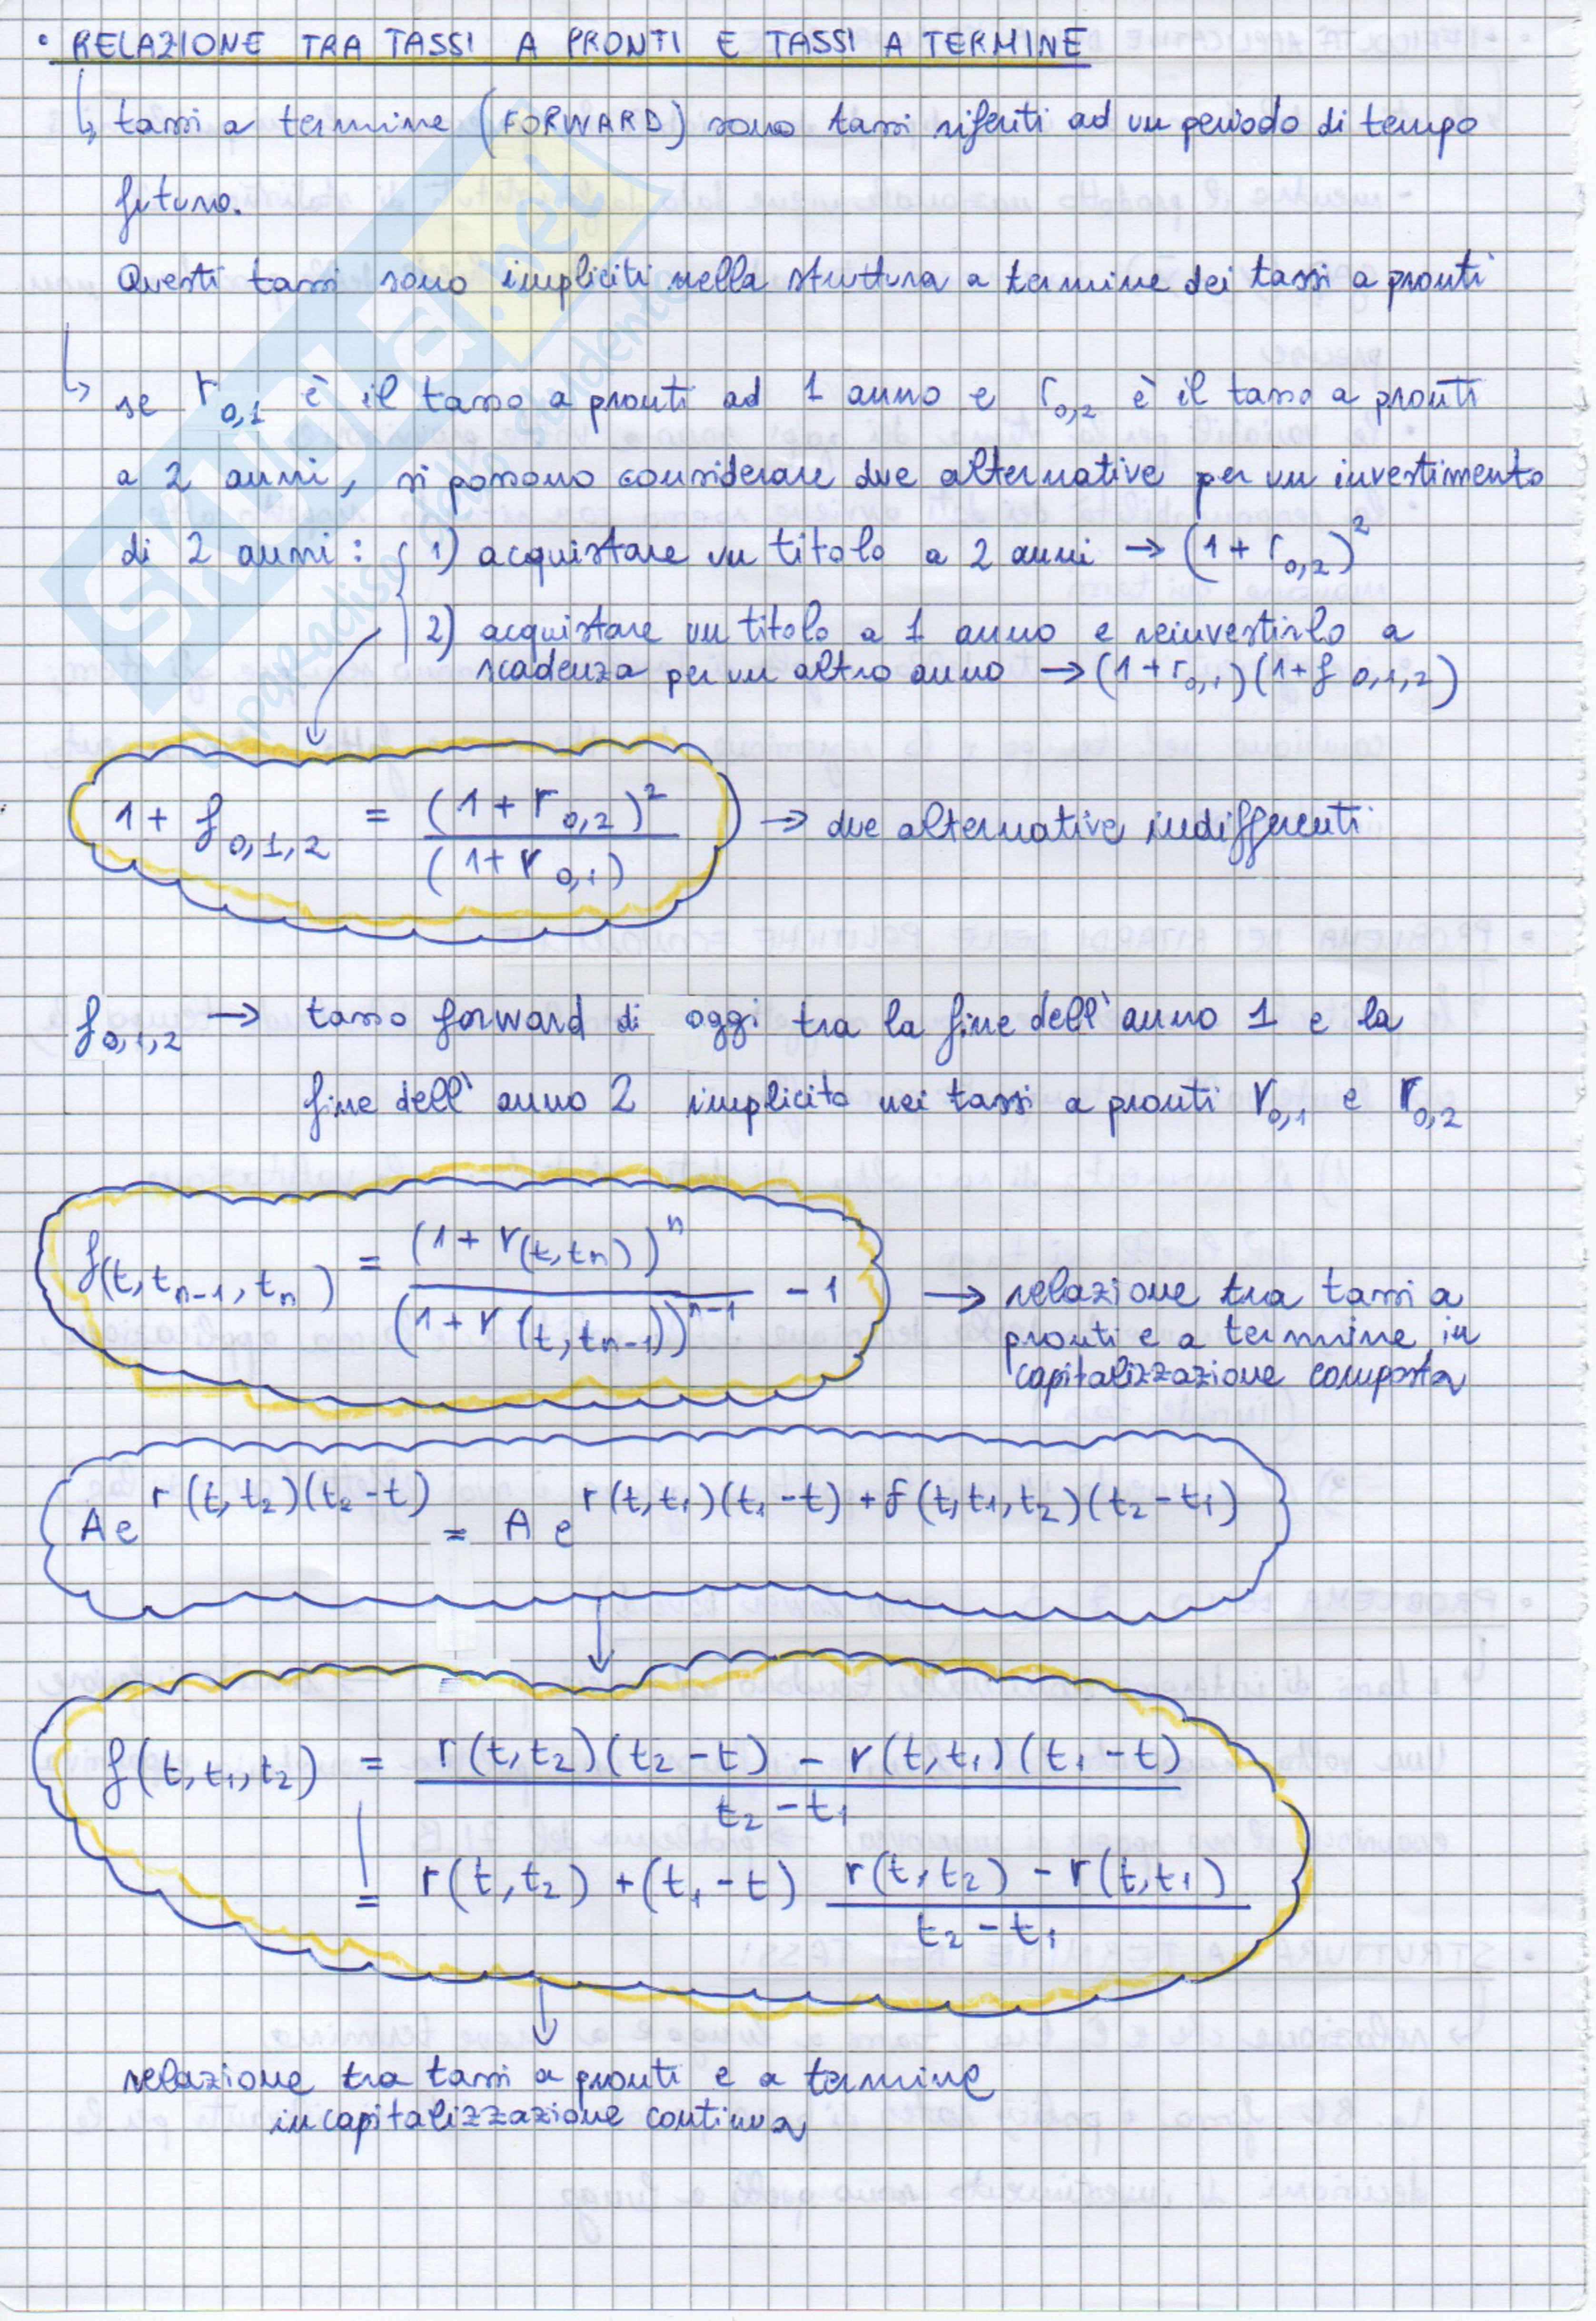 • RELAZIONE TRA TASSI A PRONTI E TASSI A TERMINE
↳ tassi a termine (FORWARD) sono tassi riferiti ad un periodo di tempo
futuro.
Questi tassi sono impliciti nella struttura a termine dei tassi a pronti
↳ se r0,1 è il tasso a pronti ad 1 anno e r0,2 è il tasso a pronti
a 2 anni, si possono considerare due alternative per un investimento
di 2 anni: { 1) acquistare un titolo a 2 anni → (1 + r0,2)²
2) acquistare un titolo a 1 anno e reinvestirlo a
scadenza per un altro anno → (1 + r0,1)(1 + f 0,1,2)
1 + f0,1,2 = (1 + r0,2)² / (1 + r0,1) → due alternative indifferenti
f0,1,2 → tasso forward di oggi tra la fine dell'anno 1 e la
fine dell'anno 2 implicito nei tassi a pronti r0,1 e r0,2
f(t, tn-1, tn) = (1 + r(t, tn))^n / (1 + r(t, tn-1))^n-1 - 1 → relazione tra tassi a
pronti e a termine in
capitalizzazione composta
A e^r(t,t2)(t2-t) = A e^r(t,t1)(t1-t) + f(t,t1,t2)(t2-t1)
f(t,t1,t2) = r(t,t2)(t2-t) - r(t,t1)(t1-t) / t2-t1
= r(t,t2) + (t1-t) r(t,t2) - r(t,t1) / t2-t1
relazione tra tassi a pronti e a termine
in capitalizzazione continua
SKUOLA.net
il paradiso dello studente